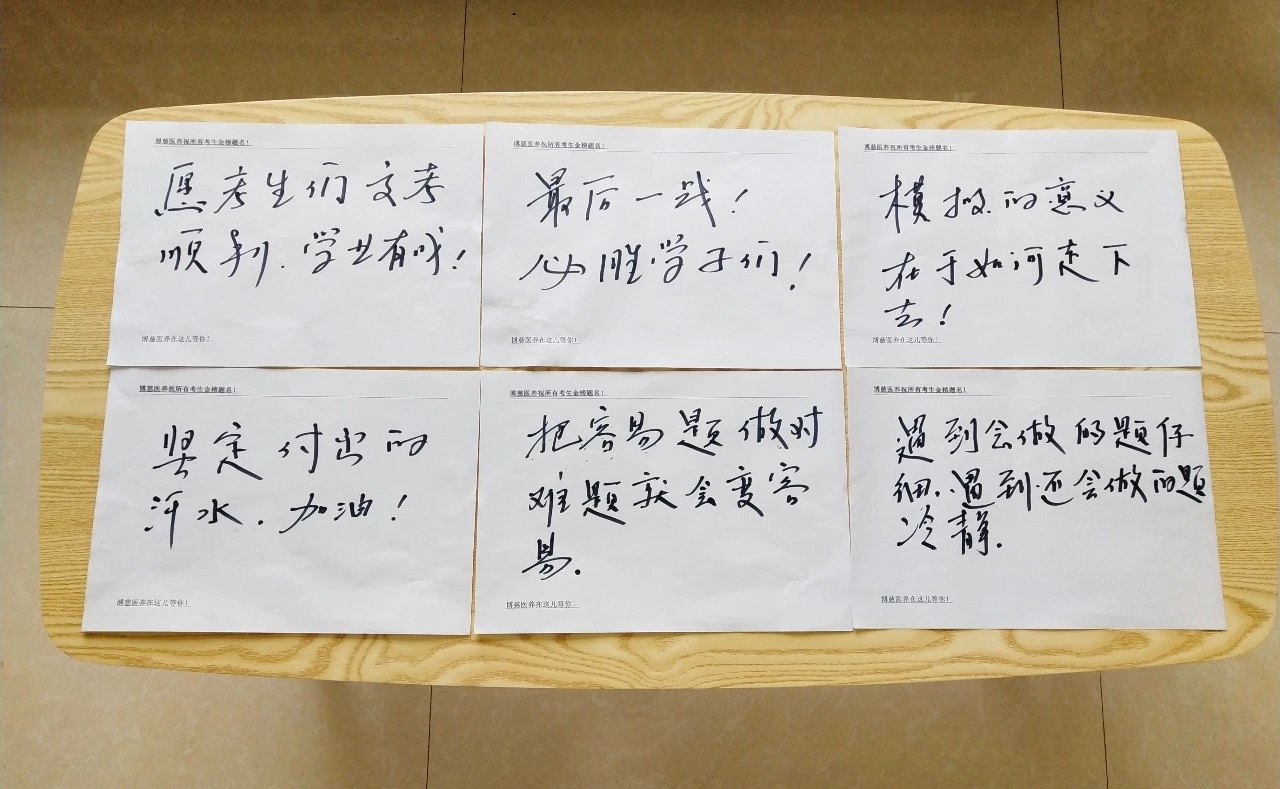 博慈医养祝所有考生金榜题名!
愿考生们文考
顺利.学业有成!
博慈医养在这儿等你!
博慈医养祝所有考生金榜题名!
最后一战!
必胜学子们!
博慈医养在这儿等你!
博慈医养祝所有考生金榜题名!
模拟的意义
在于如何走下
去!
博慈医养在这儿等你!
博慈医养祝所有考生金榜题名!
坚定付出的
汗水.加油!
博慈医养在这儿等你!
博慈医养祝所有考生金榜题名!
把容易题做对
难题就会变容
易.
博慈医养在这儿等你!
博慈医养祝所有考生金榜题名!
遇到会做的题仔
细.遇到还会做的题
冷静.
博慈医养在这儿等你!